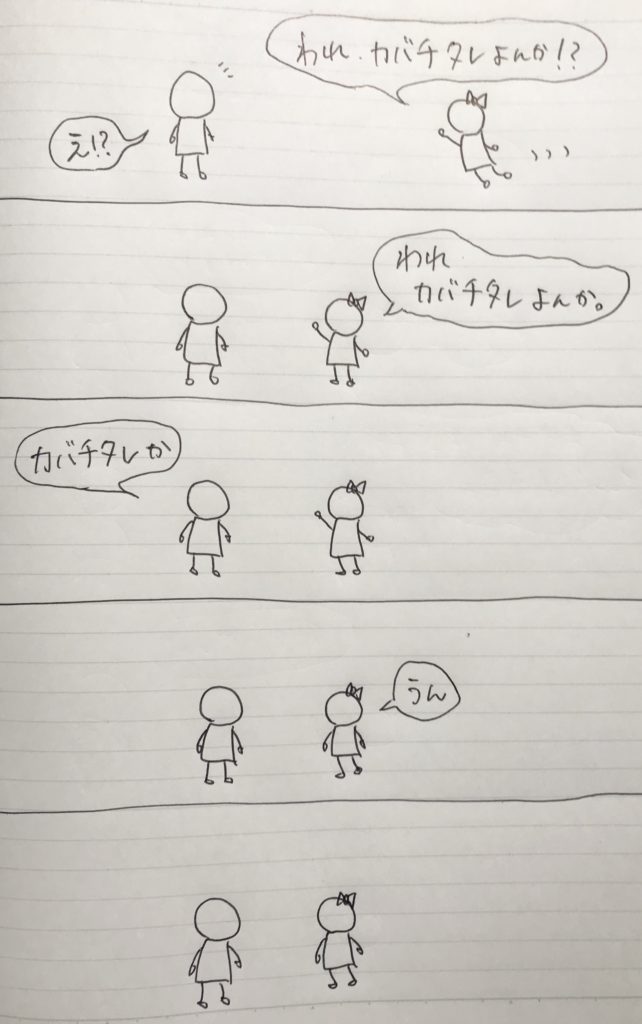 われ、カバチタレよんか!?
え!?
われ
カバチタレよんか。
カバチタレか
うん